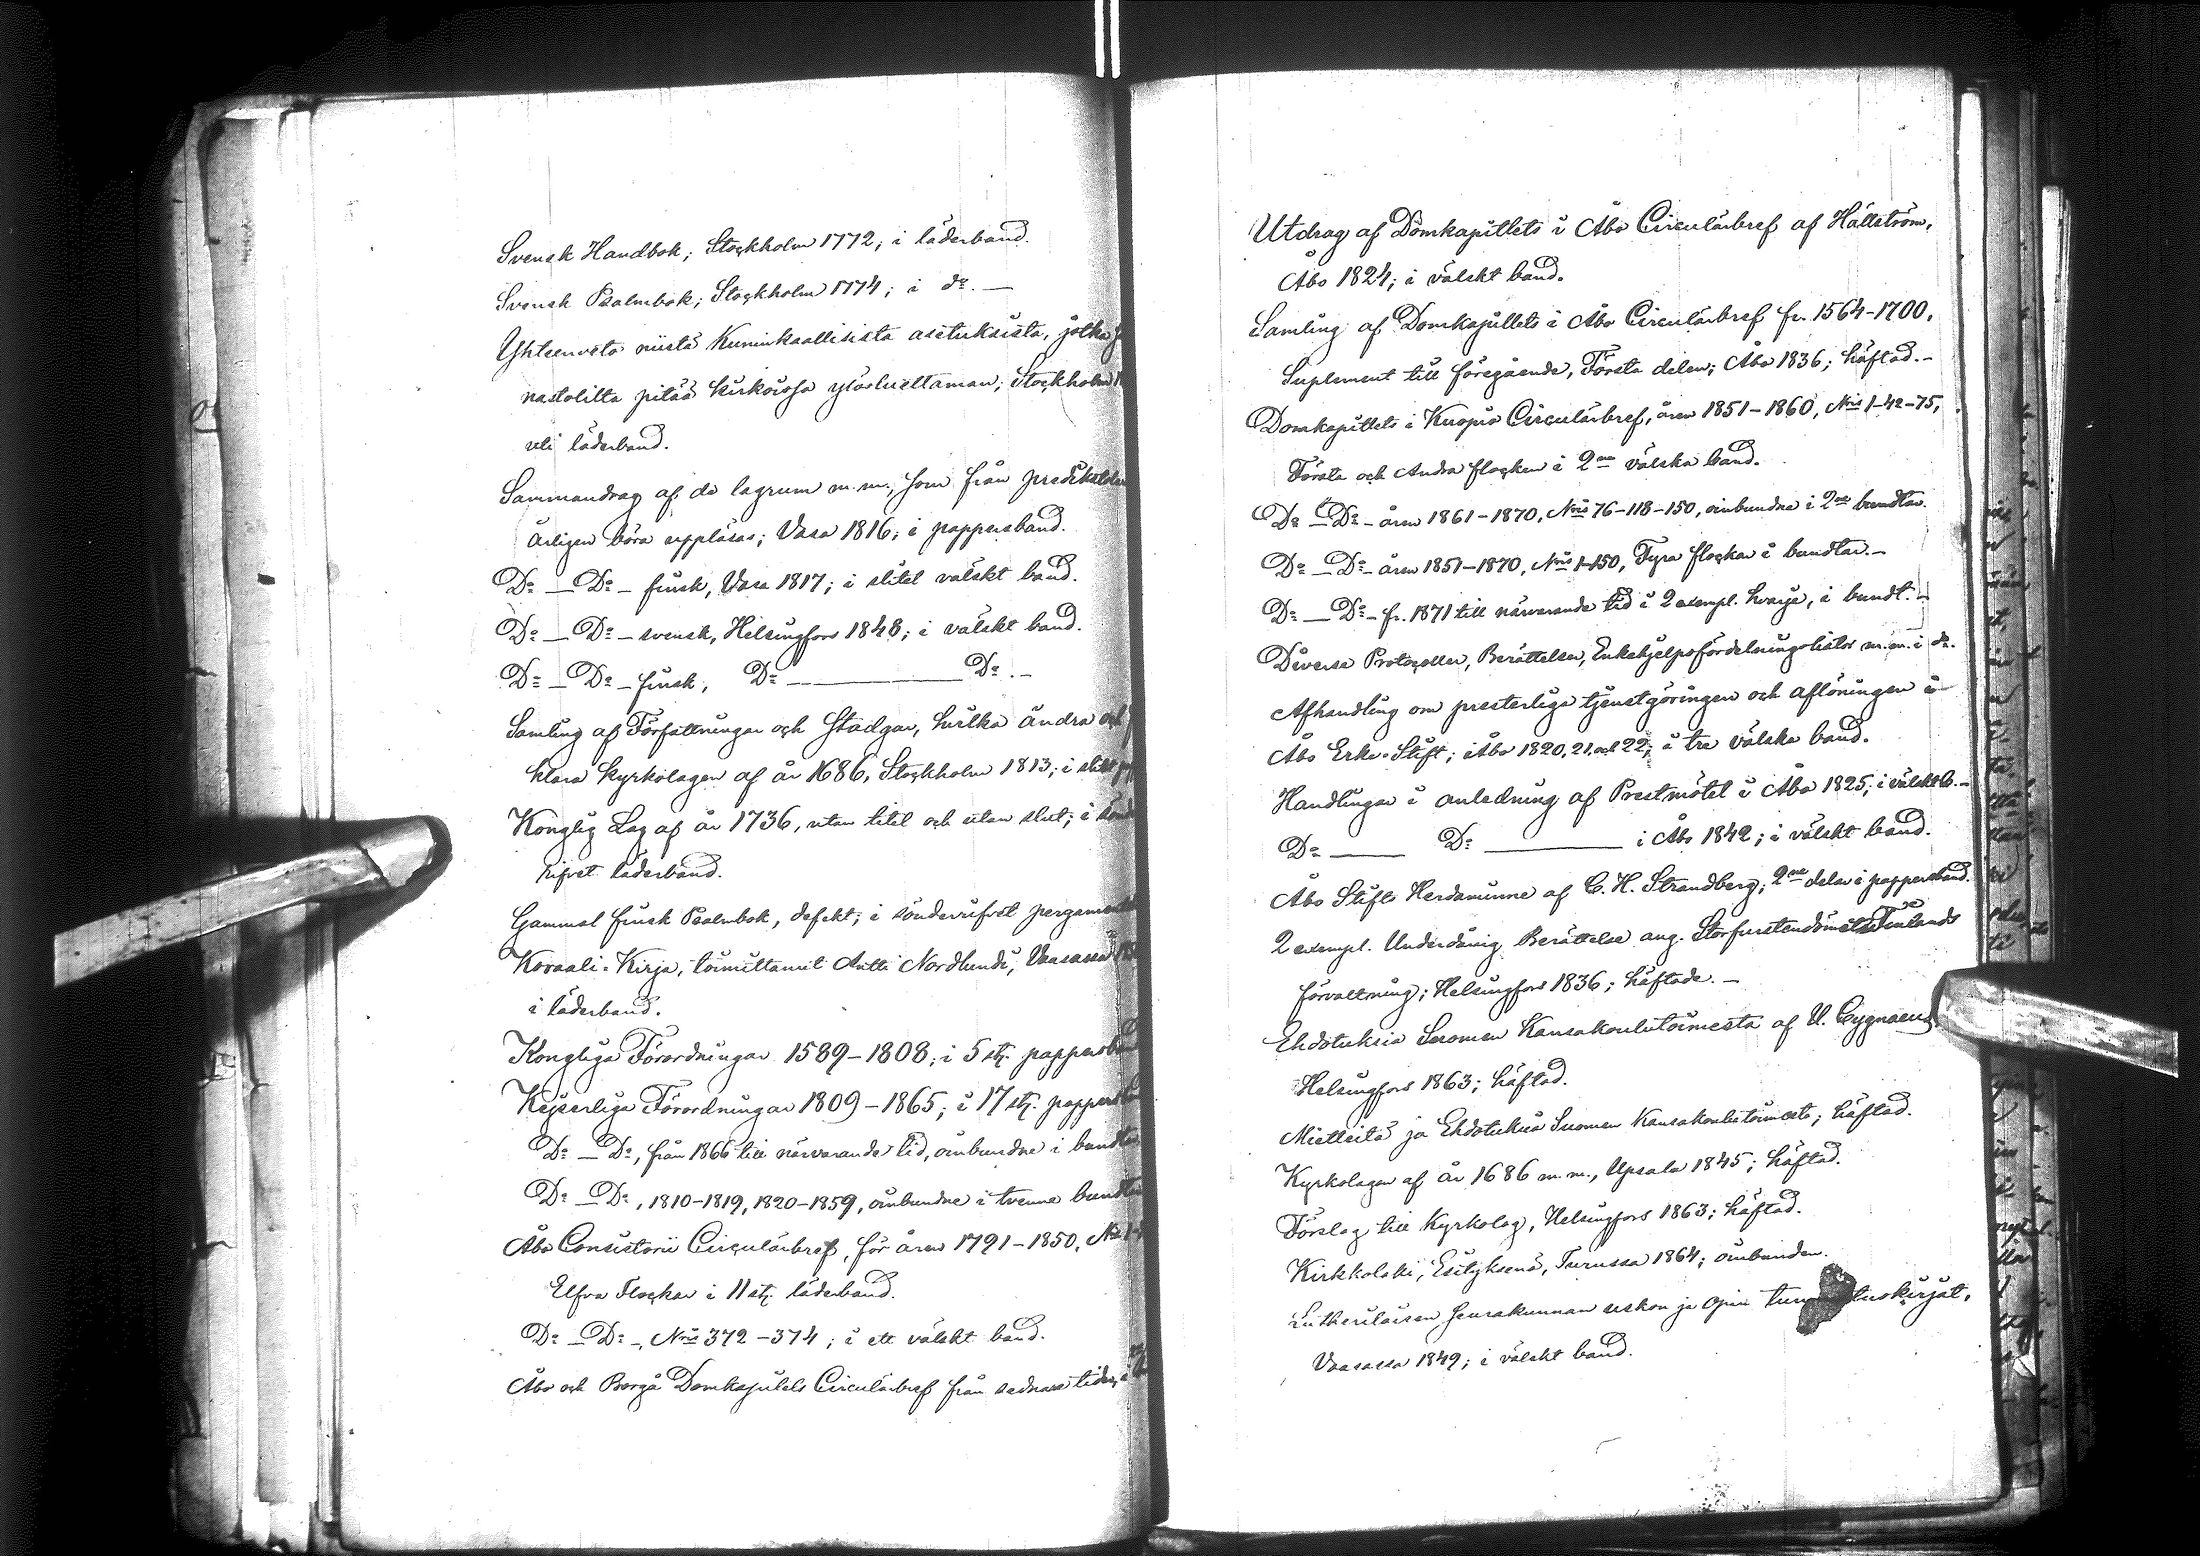 Svensk Handbok; Stockholm 1772; i läderband.
Svensk Psalmbok; Stockholm 1774; i do. —
Yhteenveto niistä Kuninkaallisista asetuksista, jotka
nastolilta pitää kirkoissa ylösluettaman; Stockholm
uti läderband.
Sammandrag af de lagrum m.m., som från predikstolen
årligen böra uppläsas; Vasa 1816; i pappersband.
Do — Do — finsk, Vasa 1817; i slitet välskt band.
Do — Do — svensk, Helsingfors 1848; i välskt band.
Do — Do — finsk, Do — Do. —
Samling af Författningar och Stadgar, hvilka ändra och
klara kyrkolagen af år 1686, Stockholm 1813; i slitet
Konglig Lag af år 1736, utan titel och utan slut; i sönd
rifvet läderband.
Gammal finsk Psalmbok, defekt; i sönderrifvet pergament
Koraali-Kirja, toimittanut Antti Nordlund, Vaasassa
i läderband.
Kongliga Förordningar 1589-1808; i 5 st. pappersband
Kejserliga Förordningar 1809-1865; i 17 st. pappersband
Do — Do, från 1866 till närvarande tid, oinbundne i bundtar
Do — Do, 1810-1819, 1820-1859, oinbundne i tvenne bundtar
Åbo Consistorii Circulärbref, för åren 1791-1850, No 1-
Elfva Flockar i 11 st. läderband.
Do — Do —, Nris 372-374; i ett välskt band.
Åbo och Borgå Domkapitels Circulärbref från sednare tider, i
Utdrag af Domkapitlets i Åbo Circulärbref af Hällström,
Åbo 1824; i välskt band.
Samling af Domkapitlets i Åbo Circulärbref fr. 1564-1700,
Suplement till föregående, Första delen; Åbo 1836; häftad. —
Domkapitlets i Kuopio Circulärbref, åren 1851-1860, Nris 1-42-75,
Första och Andra flocken i 2ne välska band.
Do — Do — åren 1861-1870, Nris 76-118-150, oinbundne i 2ne bundtar.
Do — Do — åren 1851-1870, Nris 1-150, Fyra flockar i bundtar. —
Do — Do — fr. 1871 till närvarande tid i 2 exempl. hvarje, i bundt. —
Diverse Protocoller, Berättelser, Enkehjelpsfördelningslistor m.m. i do.
Afhandling om presterliga tjenstgöringen och aflöningen i
Åbo Erke-Stift; i Åbo 1820, 21 och 22; i tre välska band.
Handlingar i anledning af Prestmötet i Åbo 1825; i välskt b. —
Do — Do — i Åbo 1842; i välskt band.
Åbo Stifts Herdaminne af C. H. Strandberg; 2ne delar i pappersband.
2 exempl. Underdånig Berättelse ang. Storfurstendömets Finlands
förvaltning; Helsingfors 1836; häftade. —
Ehdotuksia Suomen Kansakoulutoimesta af U. Cygnaeus,
Helsingfors 1863; häftad.
Mietteitä ja Ehdotuksia Suomen Kansakoulutoimesta; häftad.
Kyrkolagen af år 1686 m.m., Upsala 1845; häftad.
Förslag till Kyrkolag, Helsingfors 1863; häftad.
Kirkkolaki, Esityksenä, Turussa 1864; oinbunden.
Lutherilaisen seurakunnan uskon ja opin tun tuskirjat,
Vaasassa 1849; i välskt band.